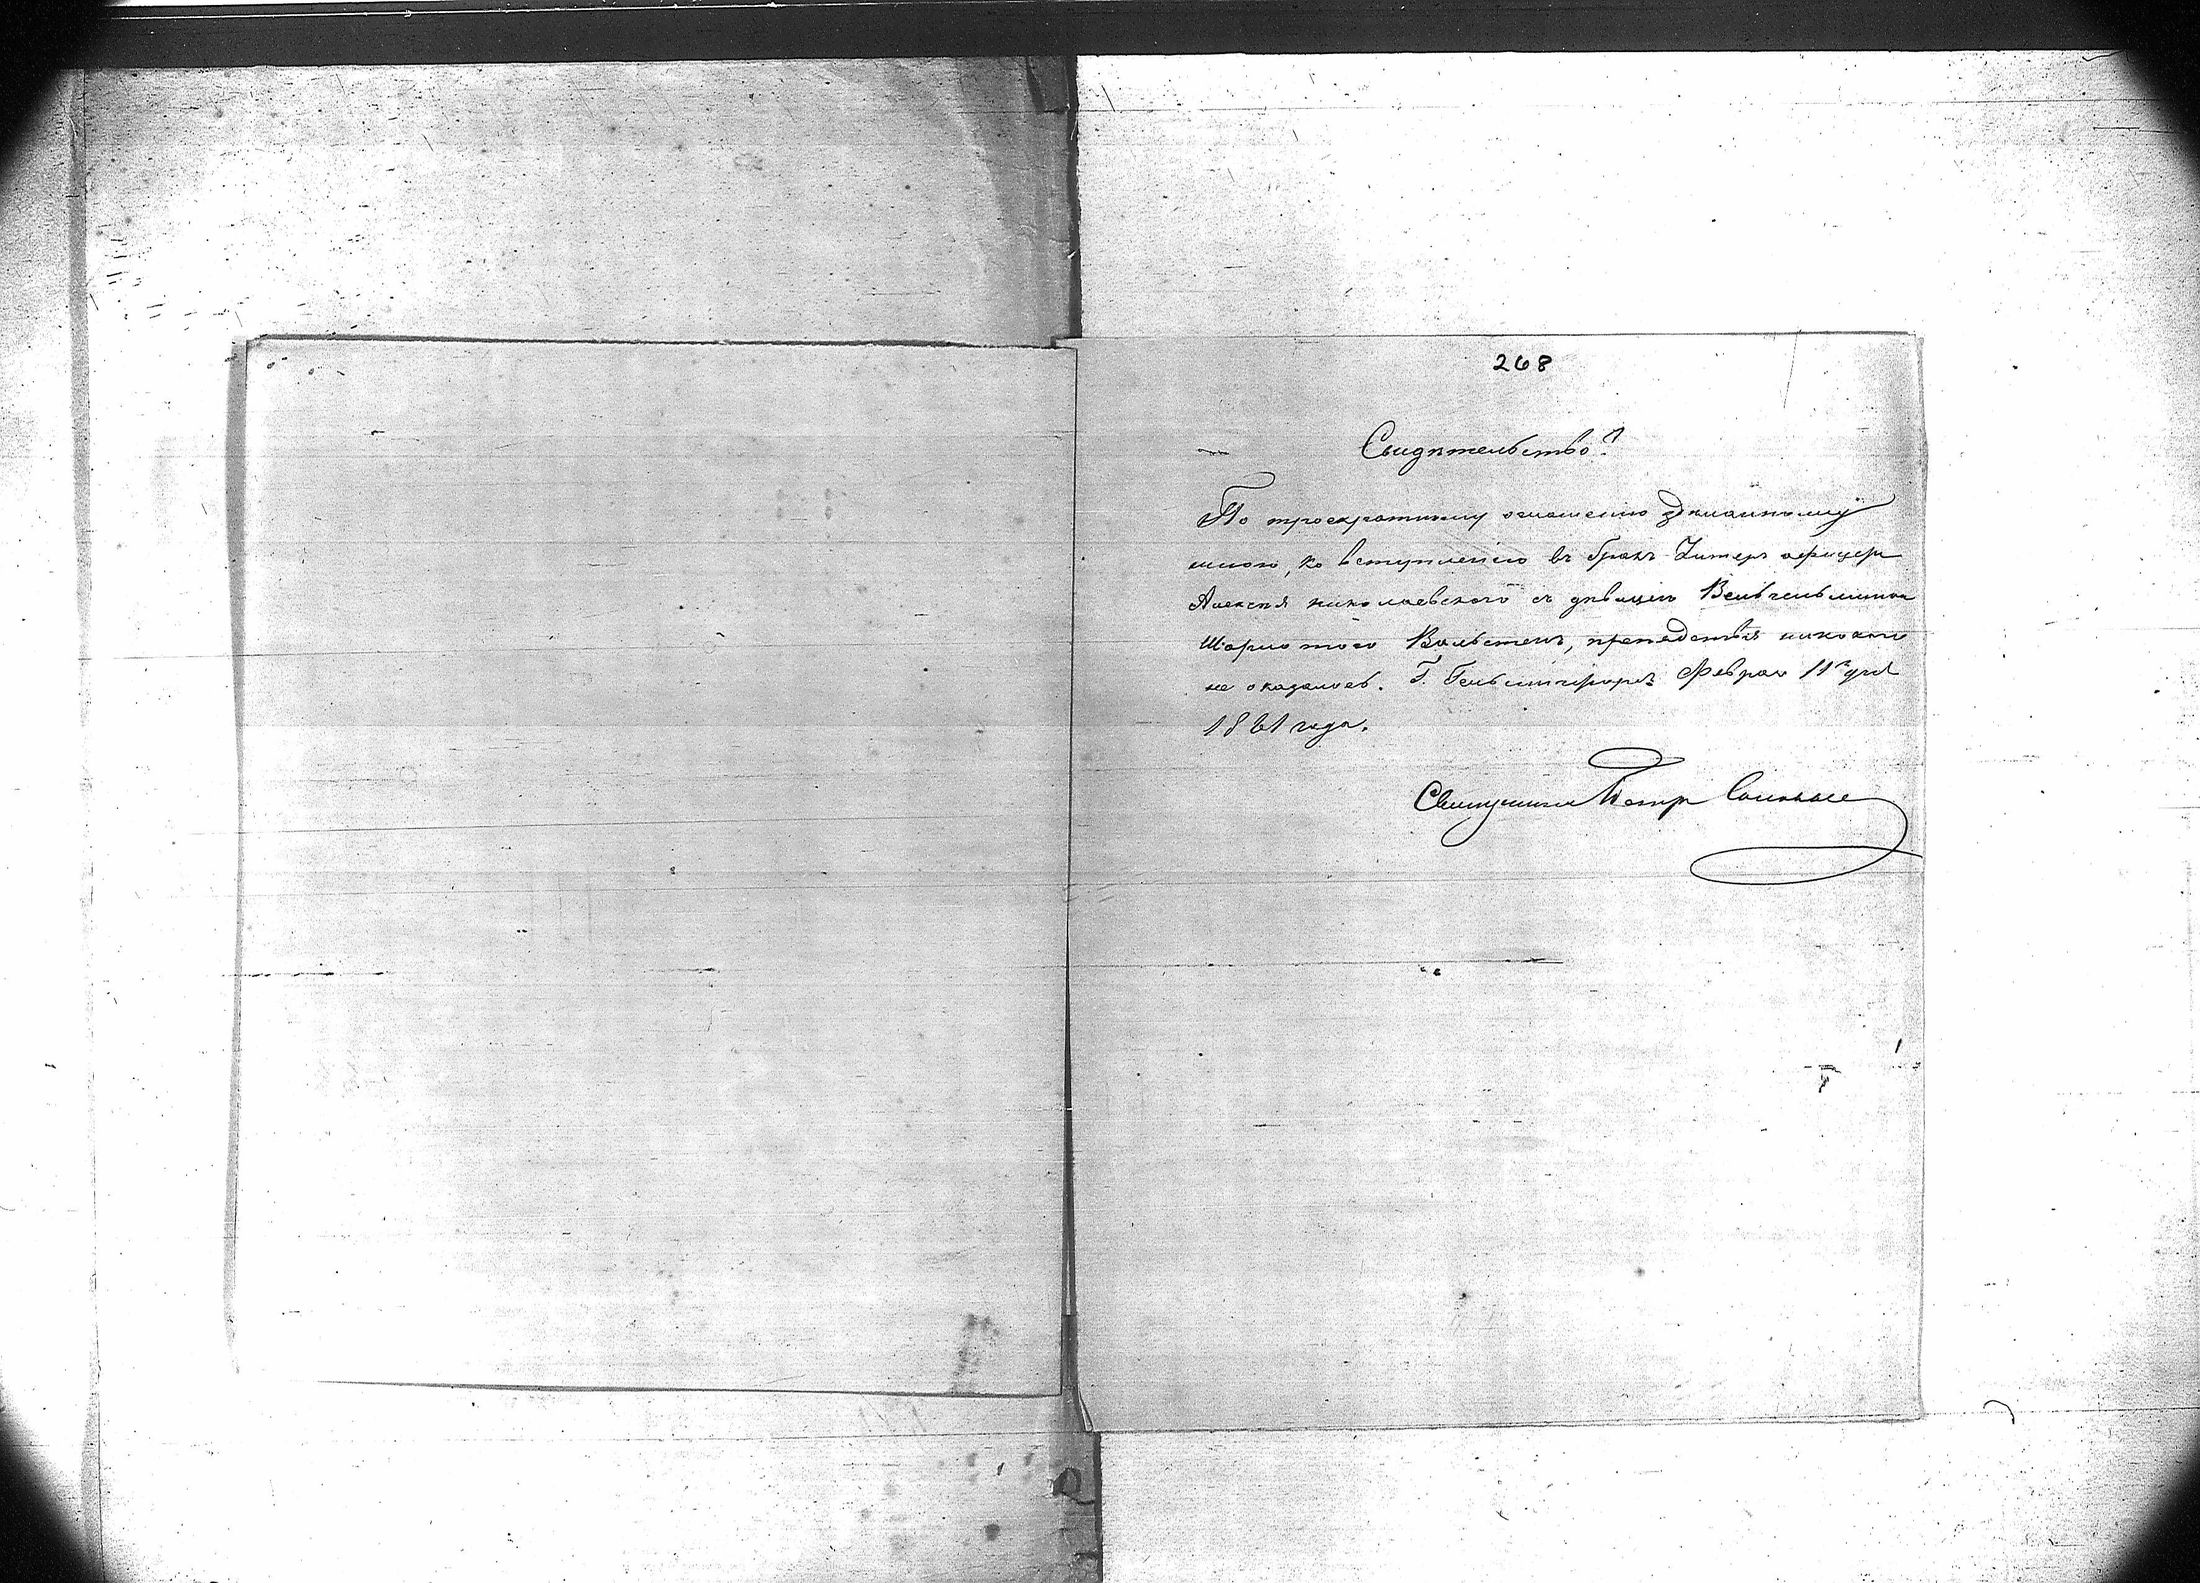 268
Свидѣтельство.
По троекратному оглашенію здѣланному
мною, ко вступленію въ бракъ Унтеръ офицера
Алексея николаевского съ дѣвицею Вельгельминою
Шарлоттою Вальстенъ, препядствія никакого
не оказалось. Г. Гельсингфорсъ Февраля 11го дня
1861 года.
Священникъ Петръ